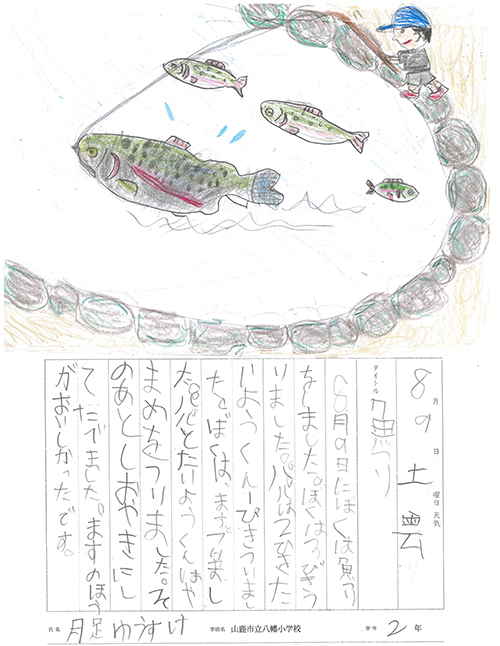 8月9日土曜日 天気 雲
タイトル 魚つり
8月9日にぼくは魚つ
りをしました。ぼくは3びきつ
りました。パパは2ひきた
いようくん一ぴきつりまし
たぼくは、ます
た。パパとたいようくんはや
まめをつりました。そ
のあとしおやきにし
てたべました。ますのほう
がおいしかったです。
氏名 月足ゆうすけ 学校名 山鹿市立八幡小学校 学年 2年